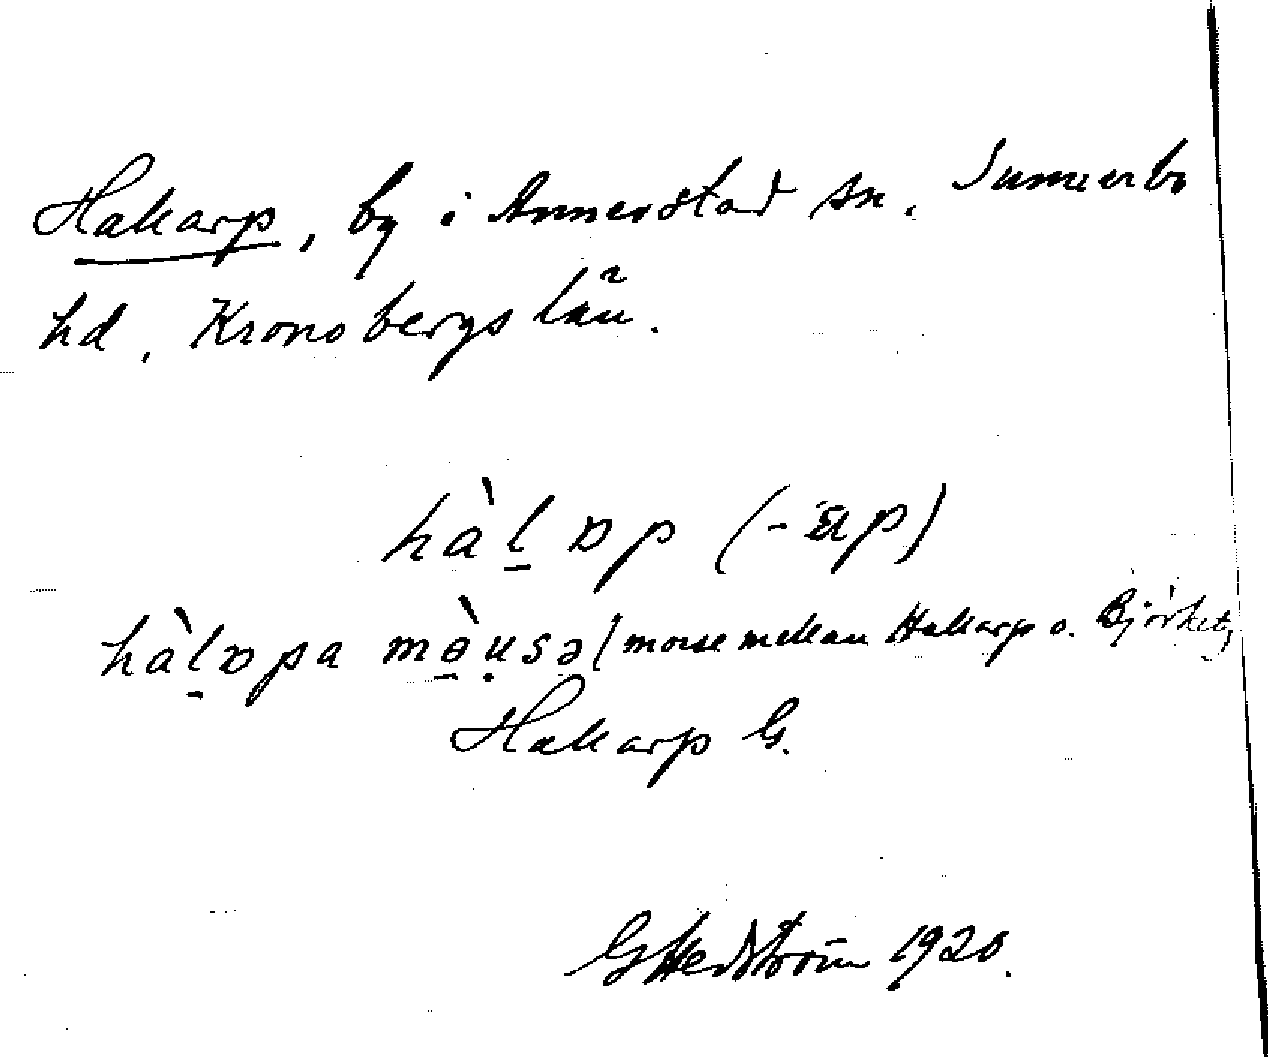 Hakarp, by i Annerstad sn. Sunnerbo
hd. Kronobergs län.
hàl̠ɒp (-ap)
hàl̠ɒpa mò̠ụsə (mosse mellan Hakarp o. Björket,
Hakarp G.
G Hedström 1920.